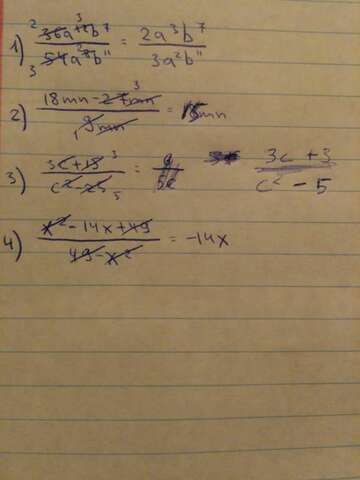 1) 36a¹²b⁷ / 54a⁸b¹¹ = 2a³b⁷ / 3a²b¹¹
2) 18mn - 27mn / 9mn = 15mn
3) 3c + 15 / c² - 25 = 3c + 3 / c² - 5
4) x² - 14x + 49 / 49 - x² = -14x